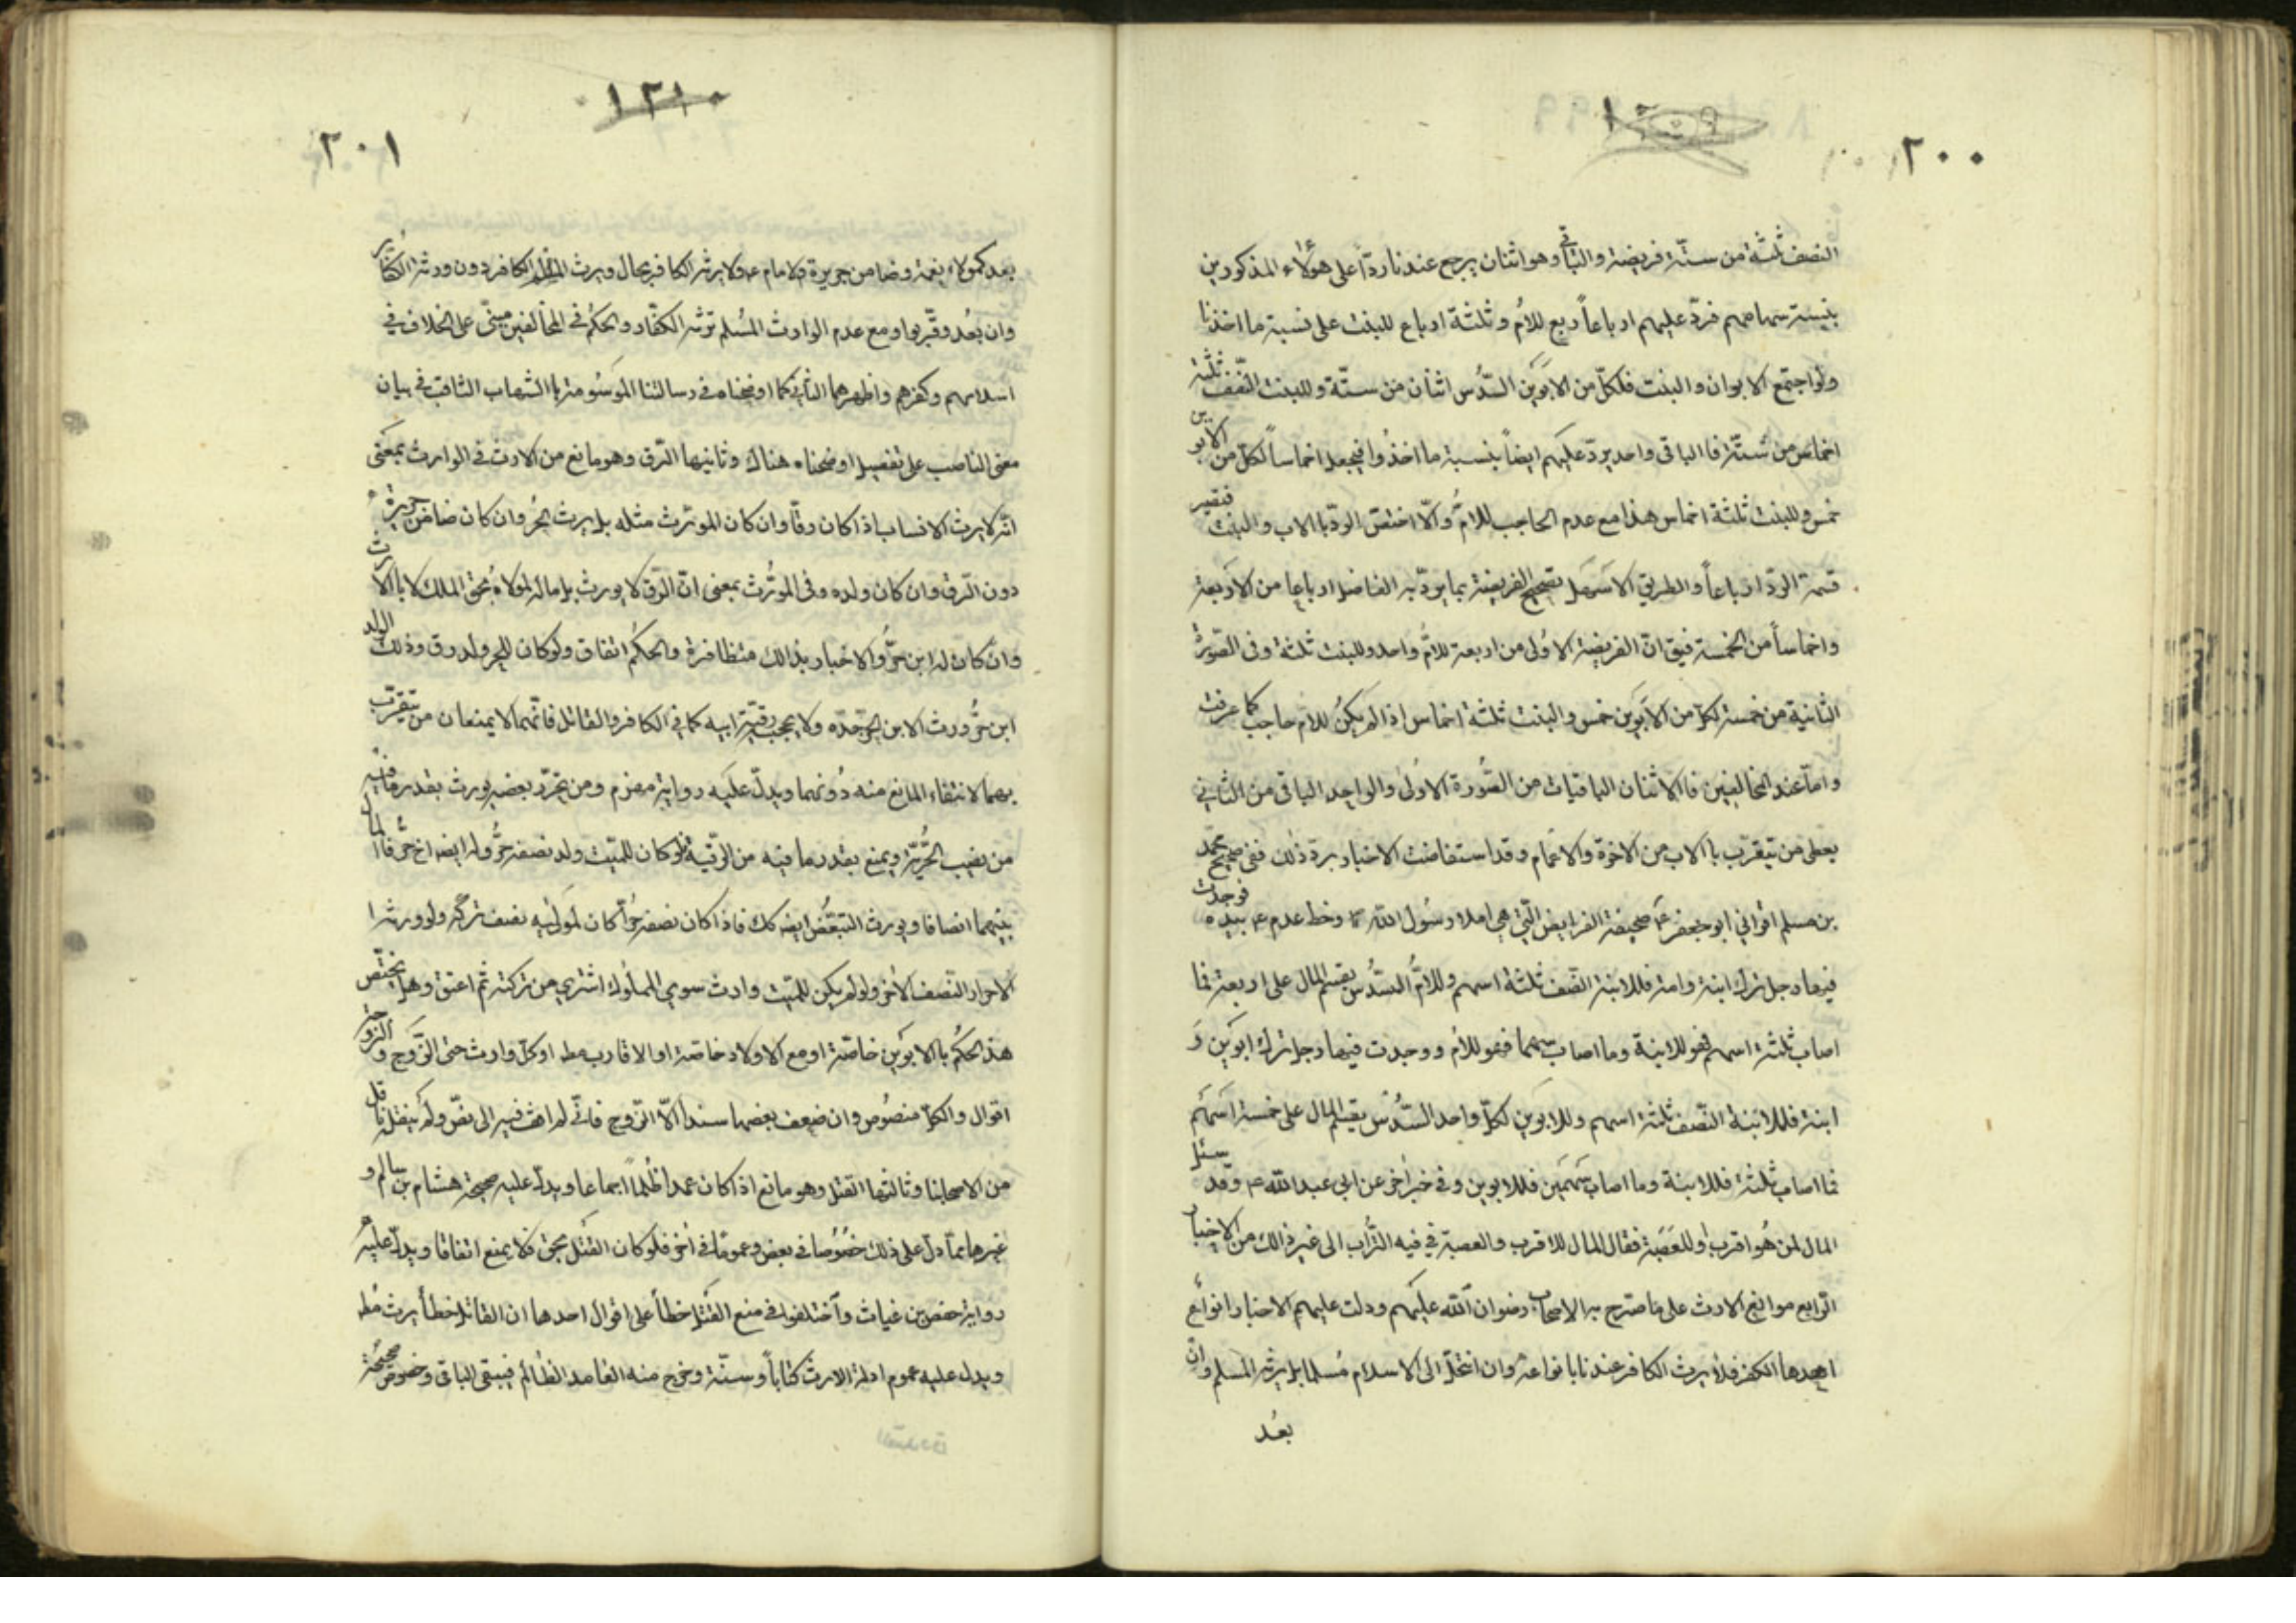 ٢٠٠
النصف ثلثة من ستّة فريضة والباقي وهو اثنان يرجع عندنا ردّاً على هؤلاء المذكورين
بنسبة سهامهم فردّ عليهم ارباعاً ربع للام وثلثة ارباع للبنت على نسبة ما اخذنا
ولو اجتمع الابوان والبنت فلكلّ من الابوين السّدس اثنان من ستّة وللبنت النّصف ثلثة
اخماس من ستّة فاالباقى واحد يردّ عليهم ايضاً بنسبة ما اخذوا فيجعل اخماساً لكلّ من الابوين
خمس وللبنت ثلثة اخماس هذا مع عدم الحاجب للامّ والّا اختصّ الردّ باالاب والبنت فتصير
قسمة الردّ ارباعاً والطريق الاسهل تصحيح الفريضة بما يردّ به الفاضل ارباعا من الاربعة
واخماساً من الخمسة فيق انّ الفريضة الاولى من اربعة للامّ واحد وللبنت ثلثة وفى الصّورة
الثانية من خمسة لكلّ من الابوين خمس والبنت ثلثة اخماس اذا لم يكن للام حاجب كما عرفت
وامّا عند المخالفين فاالاثنان الباقيات من الصّورة الاولى والواحد الباقى من الثاني
يعطى من يتقرّب باالاب من الاخوة والاعمام وقد استفاضت الاخبار بردّ ذلك ففى صحيح محمّد
بن مسلم اقراني ابو جعفر ع صحيفة الفرايض الّتى هي املاء رسول اللّه ص وخط على ع بيده فوجدت
فيها رجل ترك ابنة وامه فللابنة النّصف ثلثة اسهم وللامّ السّدس يقسم المال على اربعة فما
اصاب ثلثة اسهم فهو للابنة وما اصاب سهما فهو للام ووجدت فيها رجل ترك ابوين و
ابنة فللابنة النّصف ثلثة اسهم وللابوين لكلّ واحد السّدس يقسم المال على خمسة اسهم
فما اصاب ثلثة فللابنة وما اصاب سهمين فللابوين وفى خبر اخر عن ابى عبد اللّه ع وقد سئل
المال لمن هو اقرب او للعصبة فقال المال للاقرب والعصبة في فيه التّراب الى غير ذالك من الاخبار
الرّابع موانع الارث على ما صرّح به الاصحاب رضوان اللّه عليهم ودلت عليهم الاخبار انواع
احدها الكفر فلا يرث الكافر عندنا بانواعه وان انتحل الى الاسلام مسلما بل يرثه المسلم وان
بعُد
٢٠١
بعد كمولاء نعمة وضامن جريرة والامام ع ولا يرثه الكافر بحال ويرث المسلم الكافر دون ورثه الكفّار
وان بعُد وقّربوا ومع عدم الوارث المسلم ترثه الكفّار والحكم في المخالفين مبنّى على الخلاف في
اسلامهم وكفرهم واظهرهما الثاني كما اوضحناه في رسالتنا الموسومة باالشهاب الثاقب في بيان
معنى الناصب على تفصيل اوضحناه هناك وثانيها الرّق وهو مانع من الارث في الوارث بمعنى
انّه لا يرث الانساب اذا كان رقّا وان كان الموّرث مثله بل يرث الحُر وان كان ضامن جريرة
دون الرّق وان كان ولده وفى الموّرث بمعنى انّ الرّق لا يورث بل ماله لمولاه بحق الملك لا باالارث
وان كان له ابن حرُّ والاخبار بذالك متظافرة والحكم اتفاق ولو كان للحر ولد رق وذلك الولد
ابن حرُّ ورث الابن الحرّ جدّه ولا يحجب برقيّة ابيه كما في الكافر والقاتل فانّهما لا يمنعان من يتقرّب
بهما لانتفاء المانع منه دونهما ويدلّ عليه رواية مهزم ومن تحرّر بعضه يورث بقدر ما فيه
من نصيب الحُرّية ويمنع بقدر ما فيه من الرقّية فلو كان للميّت ولد نصفه حُرُّ وله ايضه اخ حرّ فاالمال
بينهما انصافا ويورث المتبعّض ايضه كك فاذا كان نصفه حُرّاً كان لمولَيه نصف تركته ولو ورثه
الاحرار النّصف الاخر ولو لم يكن للميّت وارث سوى المملوك اشترى من تركته ثمّ اعتق وهل يختصّ
هذ الحكم باالابوين خاصّة او مع الاولاد خاصّة او الاقارب مط او كلّ وارث حتى الزّوج والزوجة
اقوال والكلّ منصوص وان ضعف بعضها سنداً الّا الزّوج فانّي لم اقف فيه الى نصّ ولم ينقله ناقل
من الاصحابنا وثالثها القتل وهو مانع اذا كان عمداً ظُلماً اجماعا ويدلّ عليه صحيحة هشام بن سالم و
غيرها ممّا دلّ على ذلك خصوصا في بعض وعموما في اخر فلو كان القتل بحق فلا يمنع اتفاقا ويدلّ عليه
رواية حفص بن غياث واختلفوا في منع القتل خطأ على اقوال احدها ان القاتل خطأ يرث مُط
ويدل عليه عموم ادلة الارث كتاباً وسنّة وخرج منه العامد الظالم فيبقى الباقى وخصوص صحيحة